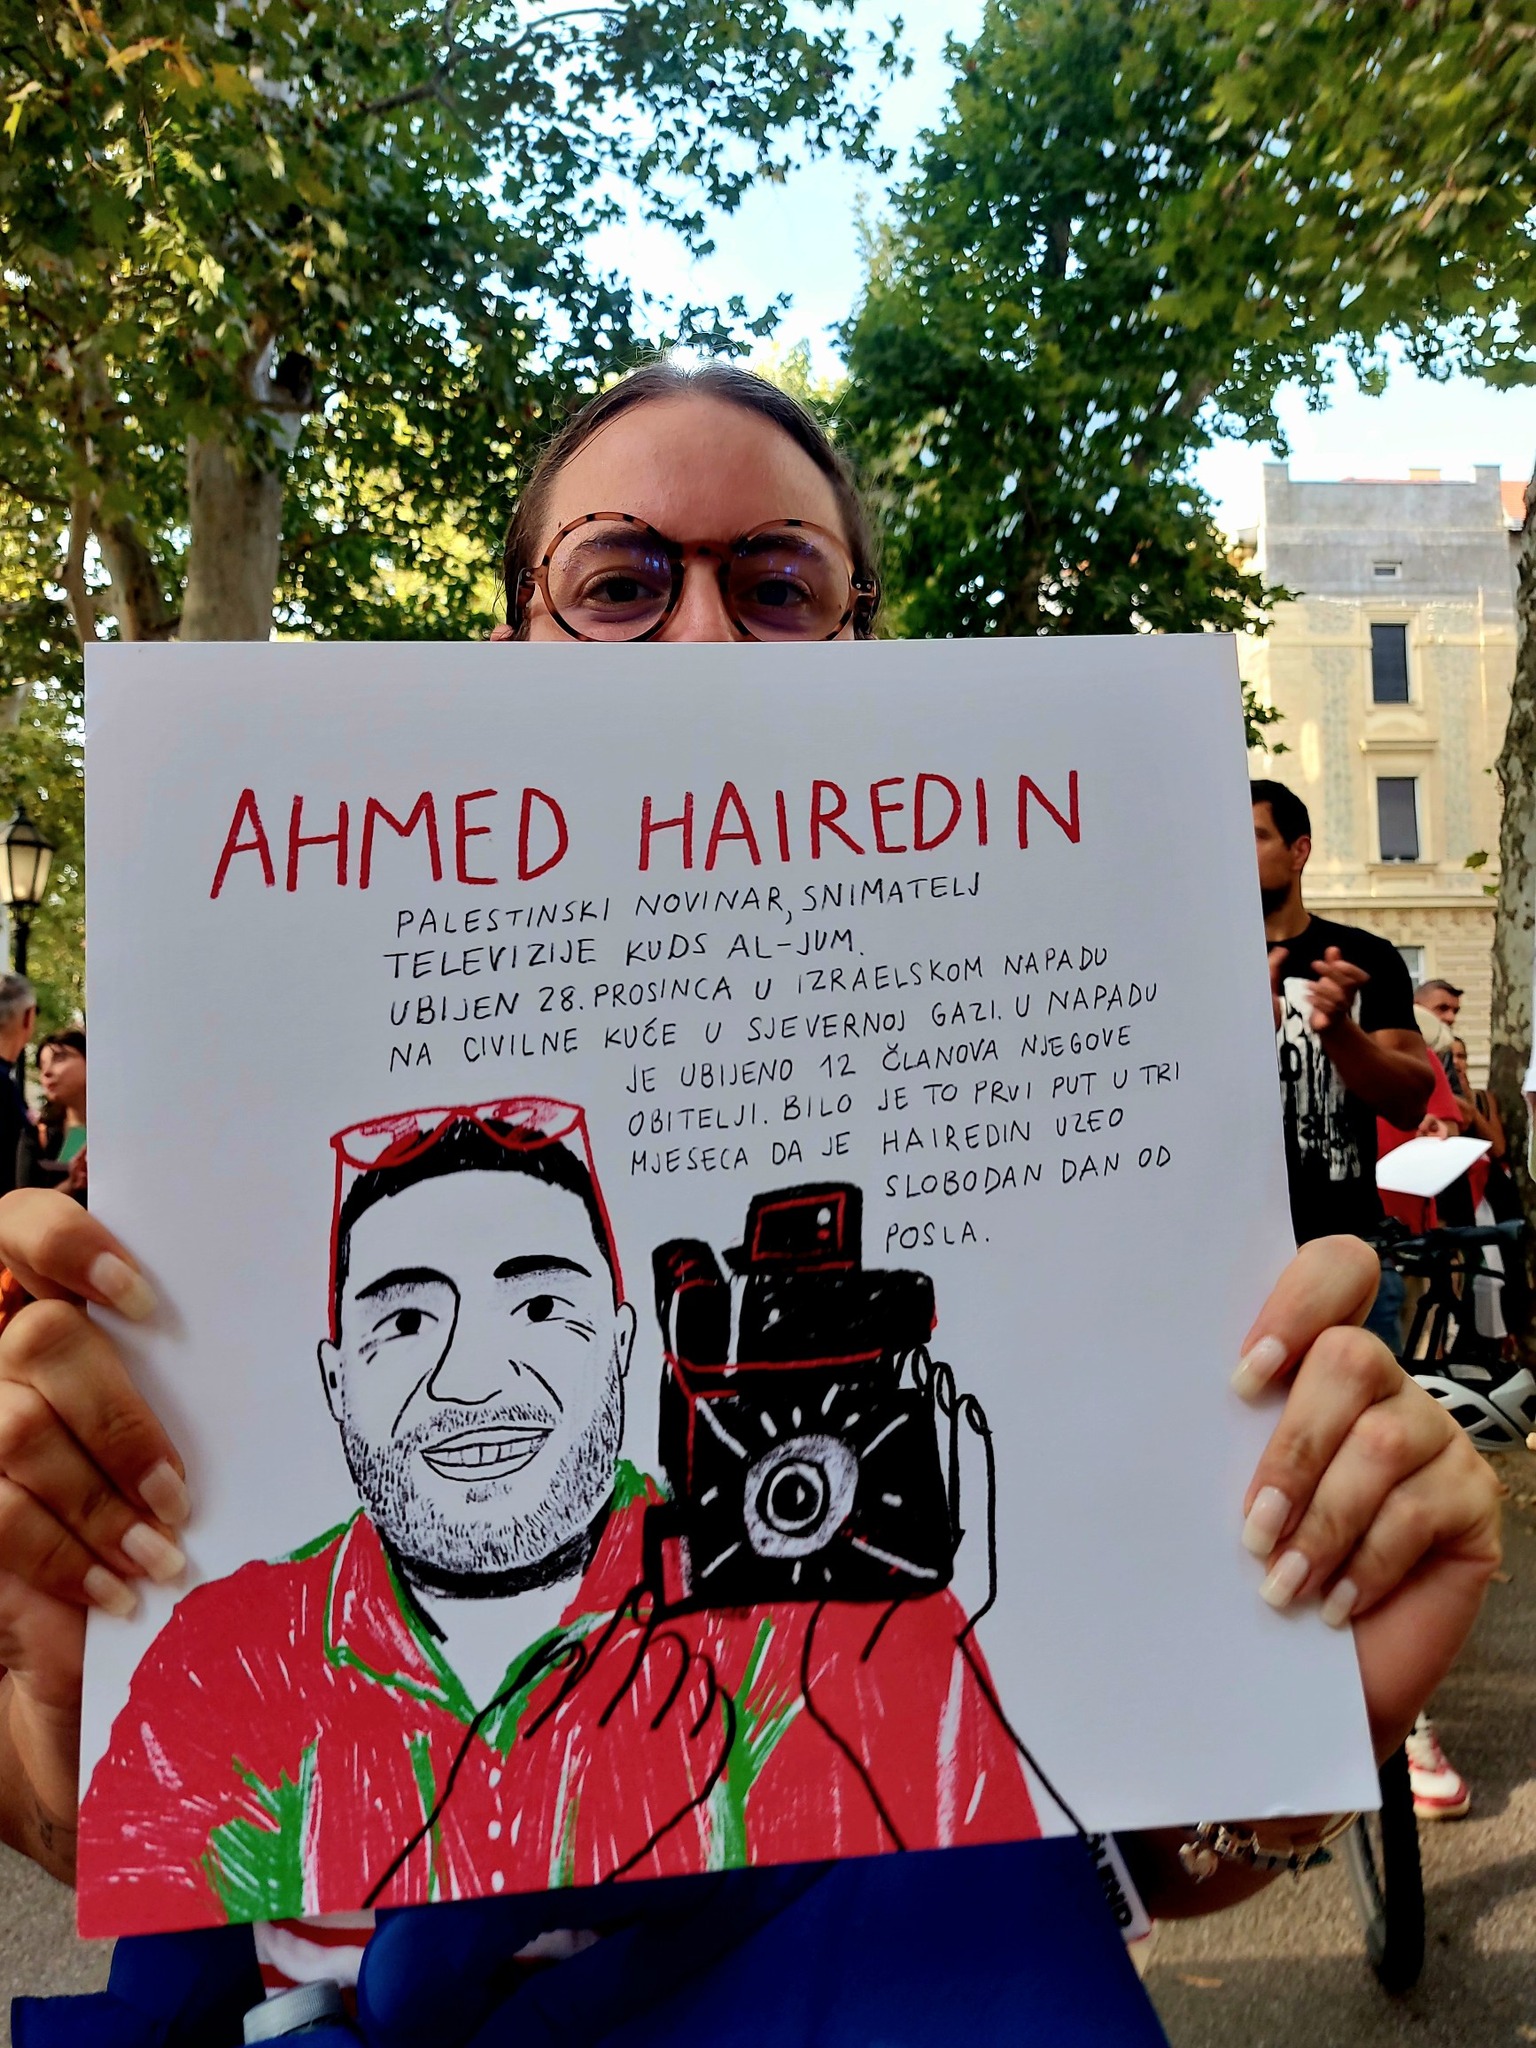 AHMED HAIREDIN
PALESTINSKI NOVINAR, SNIMATELJ
TELEVIZIJE KUDS AL-JUM.
UBIJEN 28. PROSINCA U IZRAELSKOM NAPADU
NA CIVILNE KUĆE U SJEVERNOJ GAZI. U NAPADU
JE UBIJENO 12 ČLANOVA NJEGOVE
OBITELJI. BILO JE TO PRVI PUT U TRI
MJESECA DA JE HAIREDIN UZEO
SLOBODAN DAN OD
POSLA.